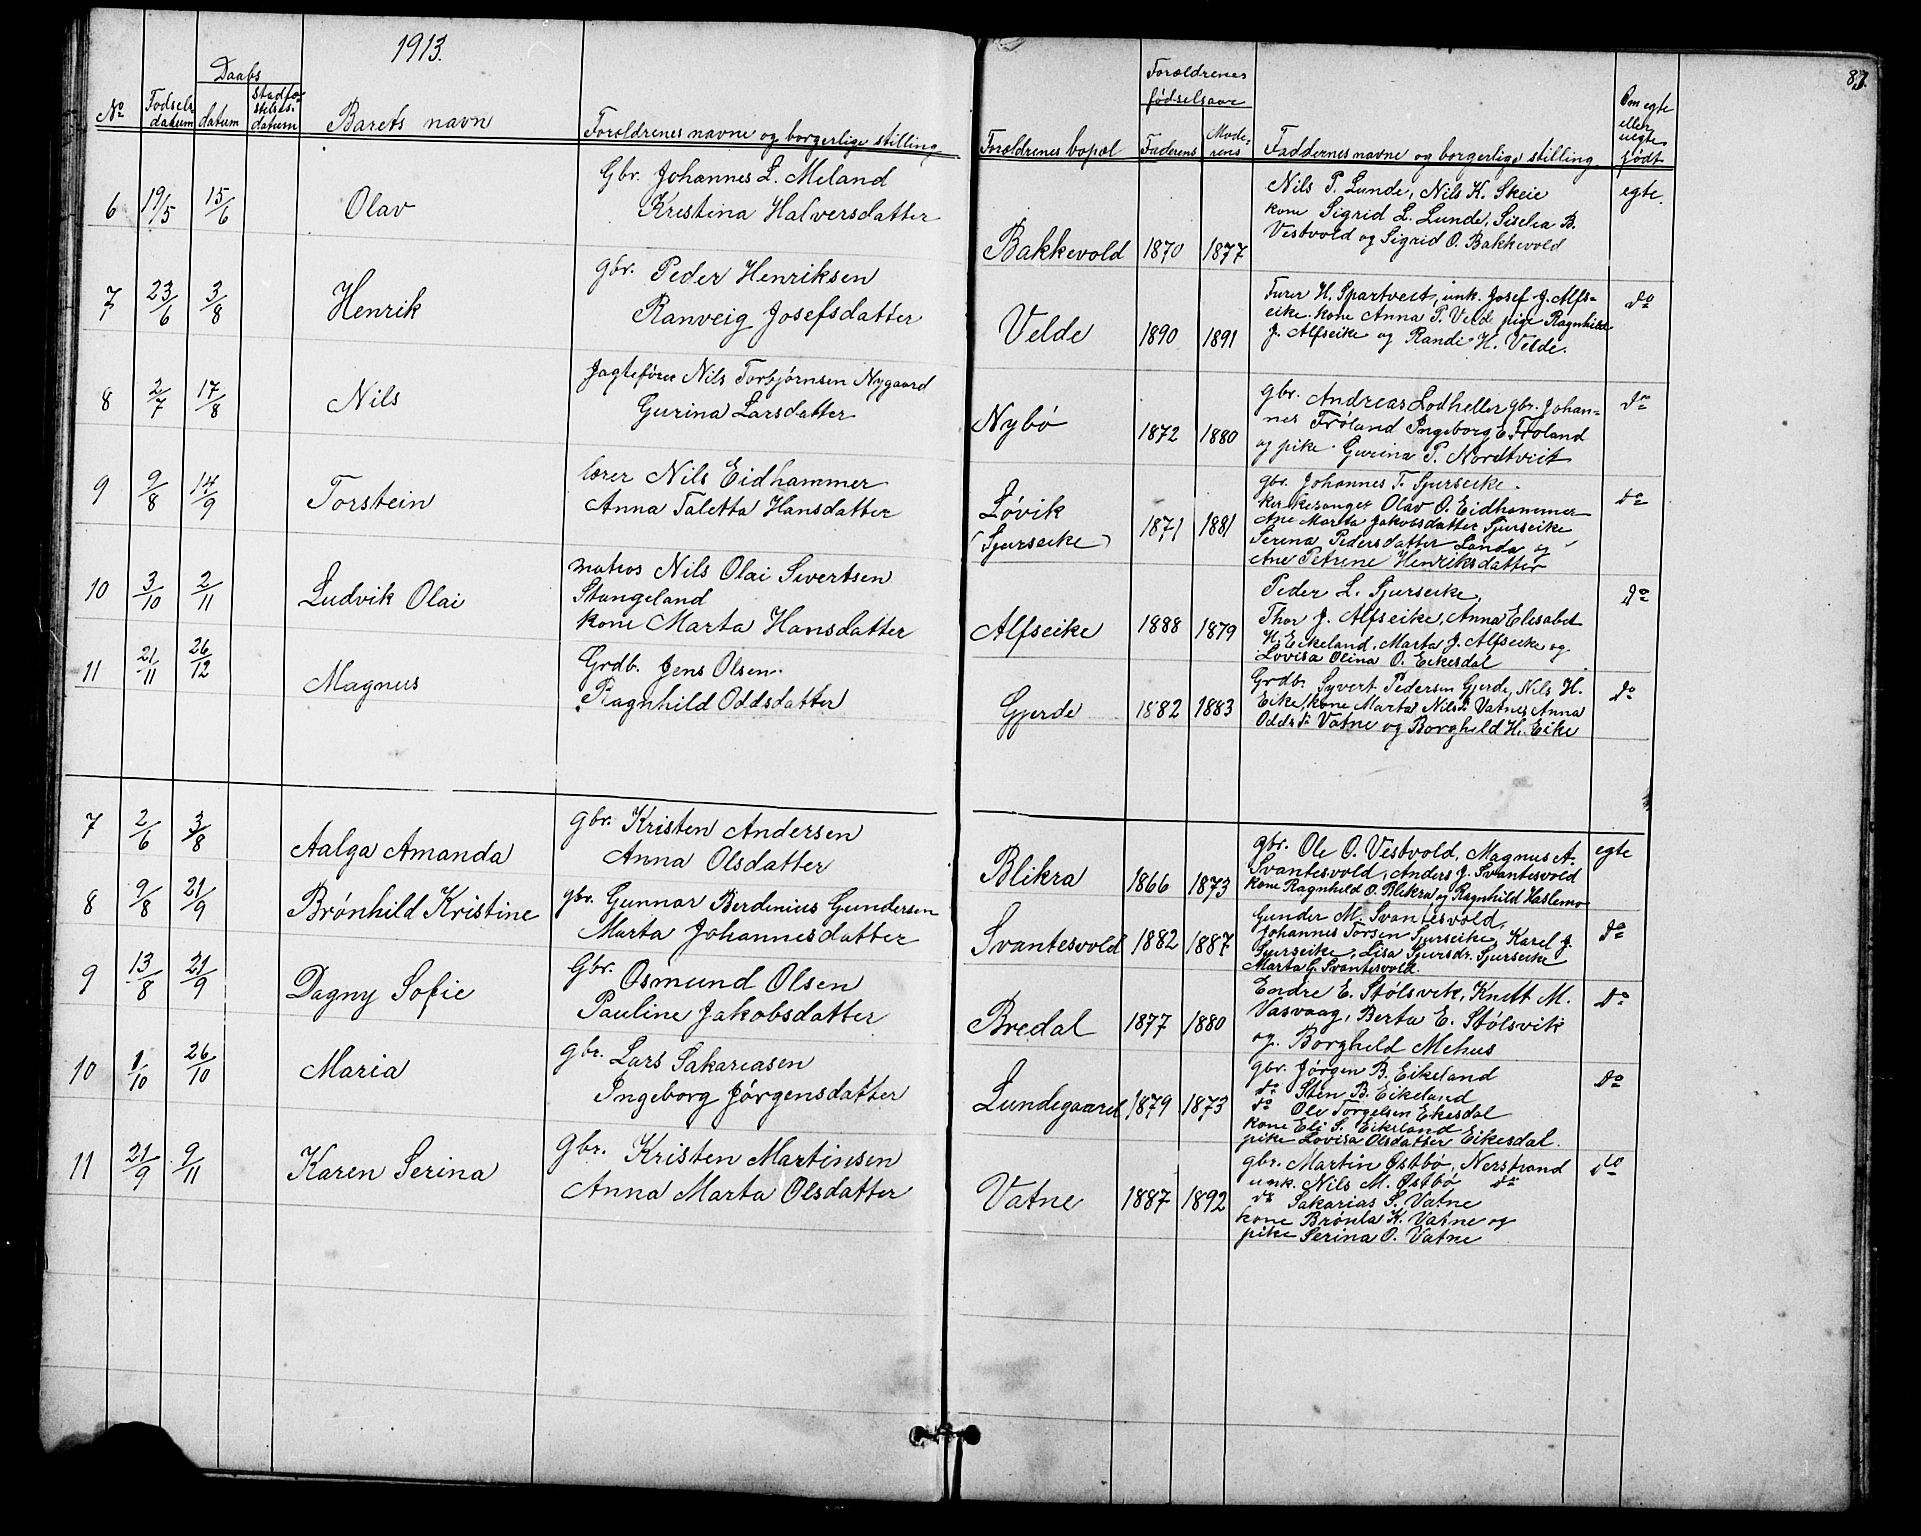 1913.
87.
№ Fødsels datum Daabs datum Stadfæstelses datum Barets navn Foreldrenes navne og borgerlige stilling Foreldrenes bopæl Foreldrenes fødselsaar Faderens Moderens Faddernes navne og borgerlige stilling Om egte eller uegte født
6 19/5 15/6 Olav
Gbr. Johannes L. Meland
Kristina Halversdatter
Bakkevold 1870 1877
Nils P. Lunde, Nils K. Skeie
kone Sigrid L. Lunde, Siselia B.
Vestvold og Sigrid O. Bakkevold
egte.
7 23/6 3/8 Henrik
gbr. Peder Henriksen
Ranveig Josefsdatter
Velde 1890 1891
H. Spartveit, unk. Josef J. Alfs-
eike. kone Anna P. Velde pige Ragnhild
J. Alfseike og Randi H. Velde.
do
8 2/7 17/8 Nils
Jagtefører Nils Torbjørnsen Nygaard
Gurina Larsdatter
Nybø 1872 1880
gbr. Andreas Lodheller gbr. Johan-
nes Frøland Ingeborg E. Frøland
og pike Gurina P. Nordtveit
do
9 9/8 14/9 Torstein
lærer Nils Eidhammer
Anna Taletta Hansdatter
Løvik
(Sjurseike) 1871 1881
gbr. Johannes T. Sjurseike.
kirkesanger Olav O. Eidhammer
Ane Marta Jakobsdatter Sjurseike
Serina Pedersdatter Landa og
Ane Petrine Henriksdatter
do
10 3/10 2/11 Ludvik Olai
matros Nils Olai Sivertsen
Stangeland
kone Marta Hansdatter
Alfseike 1888 1879
Peder L. Sjurseike,
Thor J. Alfseike, Anna Elisabet
H. Eikeland, Marta J. Alfseike og
Lovisa Olina O. Eikesdal
do
11 21/11 26/12 Magnus
Grdb. Jens Olsen.
Ragnhild Oddsdatter
Gjerde 1882 1883
Grdb. Syvert Pedersen Gjerde, Nils H.
Eike, kone Marta Nilsd. Vatne, Anna
Vatne og Borghild H. Eike
do
7 2/6 3/8 Aalga Amanda
gbr. Kristen Andersen
Anna Olsdatter
Blikra 1866 1873
gbr. Ole O. Vestvold, Magnus A.
Svantesvold, Anders J. Svantesvold
kone Ragnhild O. Blikra og Ragnhild Haslemo
egte
8 9/8 21/9 Brønhild Kristine
gbr. Gunnar Berdinius Gundersen
Marta Johannesdatter
Svantesvold 1882 1887
Gunder M. Svantesvold,
Johannes Torsen Sjurseike, Karel J.
Sjurseike, Lisa Sjursdr. Sjurseike
Marta G. Svantesvold.
do
9 13/8 21/9 Dagny Sofie
Gbr. Osmund Olsen
Pauline Jakobsdatter
Bredal 1877 1880
Endre E. Stølsvik, Knutt M.
Vasvaag, Berta E. Stølsvik
og Borghild Mehus
do
10 1/10 26/10 Maria
gbr. Lars Sakariasen
Ingeborg Jørgensdatter
Lundegaard 1879 1873
gbr. Jørgen B. Eikeland
do Sten B. Eikeland
do Ole Torgelsen Ekesdal
kone Eli S. Eikeland
pike Lovisa Olsdatter Eikesdal.
do
11 21/9 9/11 Karen Serina
gbr. Kristen Martinsen
Anna Marta Olsdatter
Vatne 1887 1892
gbr. Martin Østbø, Nerstrand
unk. Nils M. Østbø do
do Sakarias S. Vatne
kone Brønla K. Vatne og
pike Serina O. Vatne
do